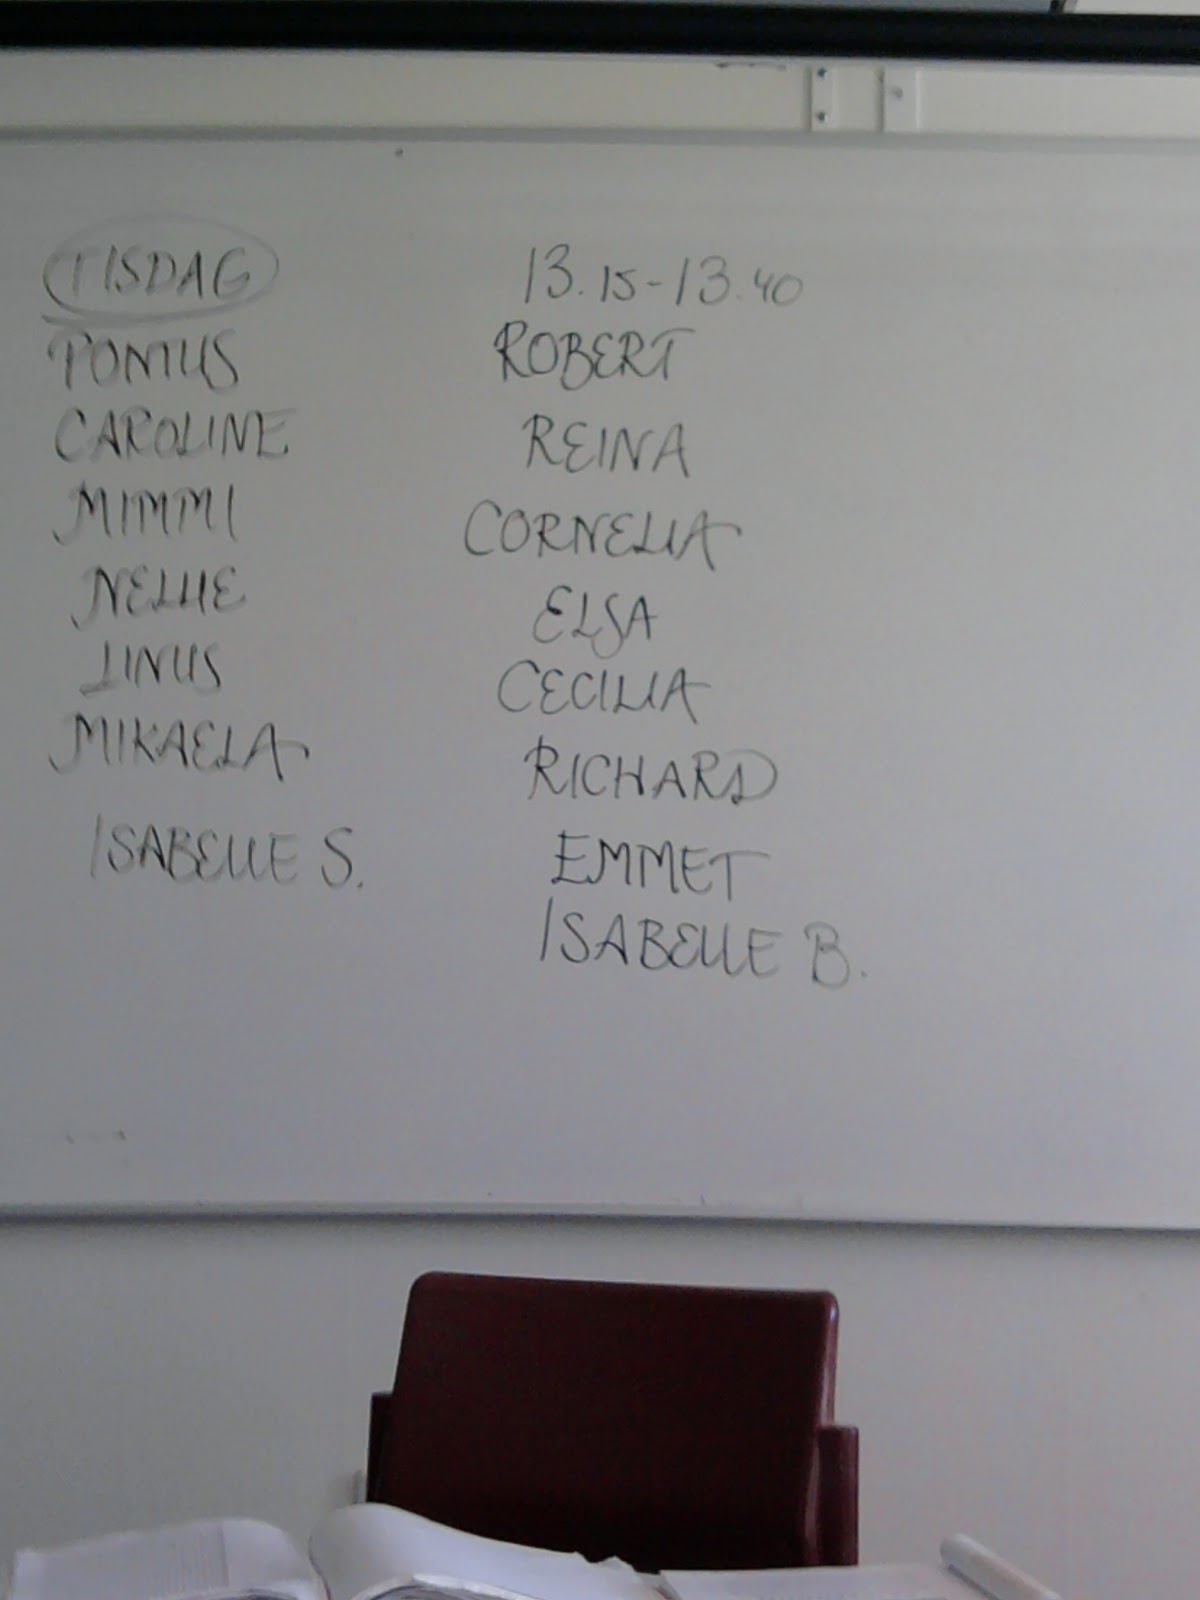 TISDAG
PONTUS
CAROLINE
MIMMI
NELLIE
LINUS
MIKAELA
ISABELLE S.
13.15-13.40
ROBERT
REINA
CORNELIA
ELSA
CECILIA
RICHARD
EMMET
ISABELLE B.